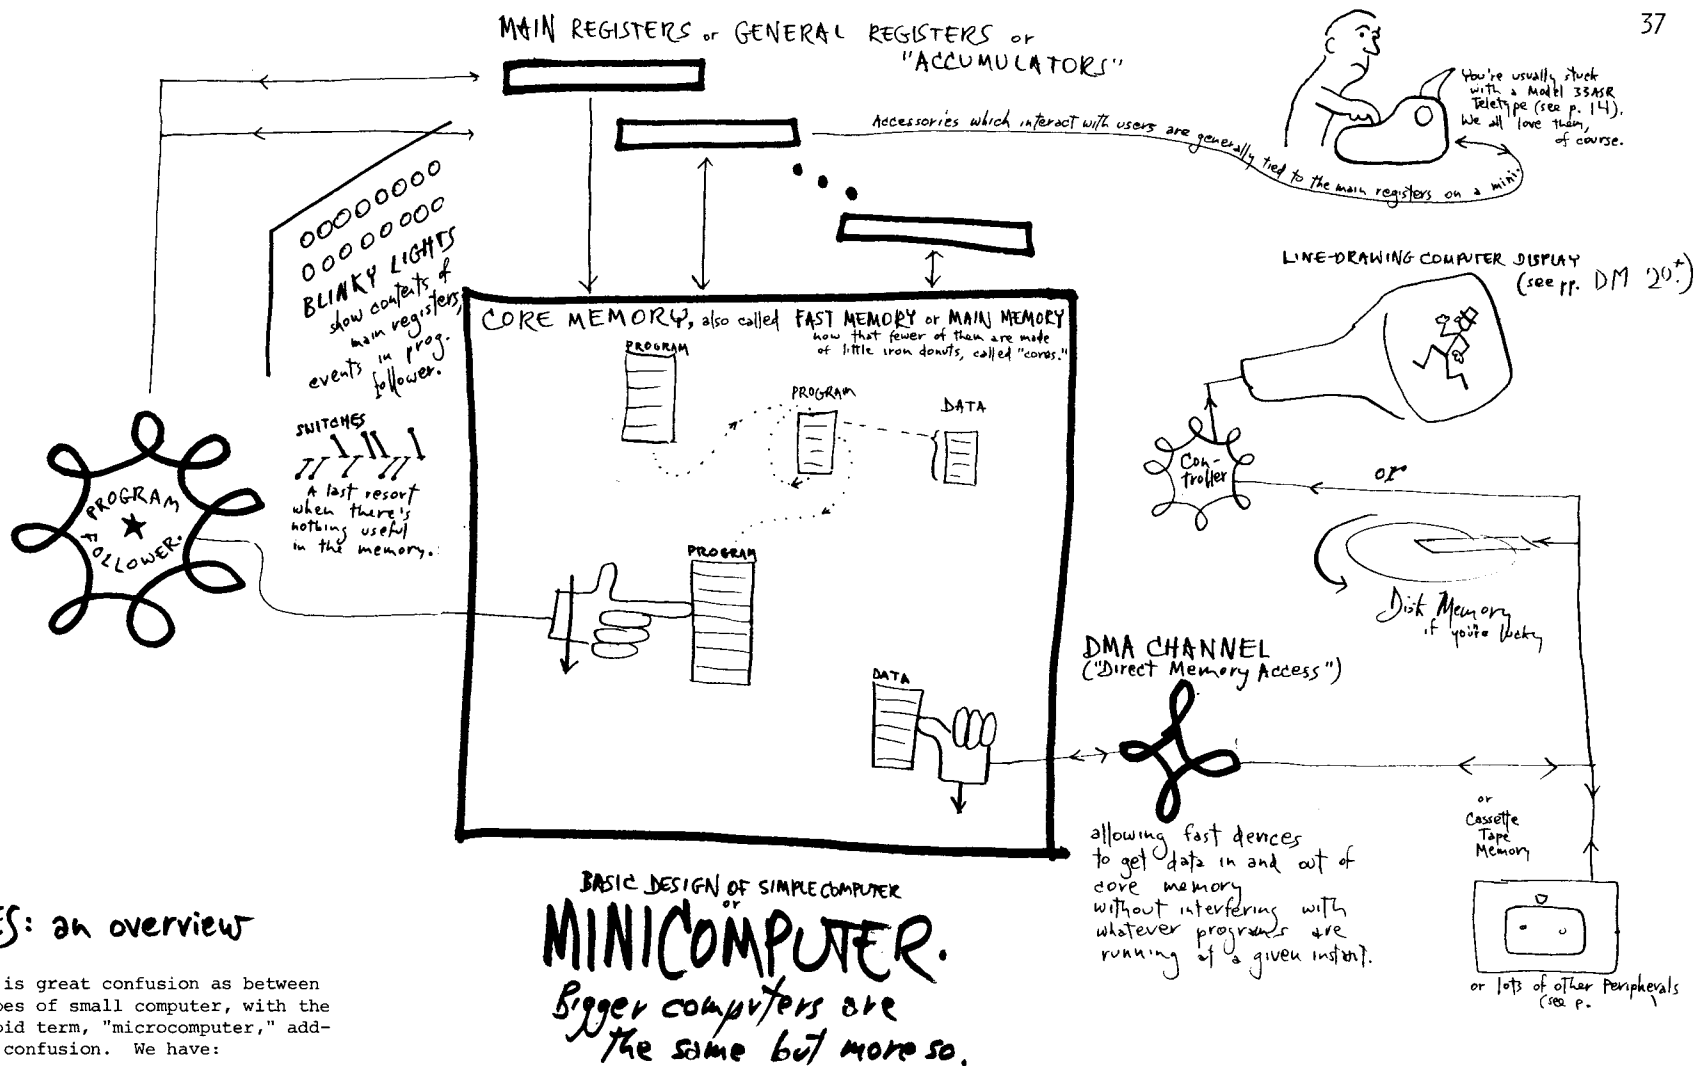 37
MAIN REGISTERS or GENERAL REGISTERS or
"ACCUMULATORS"
You're usually stuck
with a Model 33ASR
Teletype (see p. 14).
We all love them,
of course.
Accessories which interact with users are generally tied to the main registers on a mini.
BLINKY LIGHTS
show contents of
main registers,
events in prog.
follower.
SWITCHES
A last resort
when there's
nothing useful
in the memory.
PROGRAM
FOLLOWER.
CORE MEMORY, also called FAST MEMORY or MAIN MEMORY
now that fewer of them are made
of little iron donuts, called "cores."
PROGRAM
PROGRAM
DATA
PROGRAM
DATA
LINE-DRAWING COMPUTER DISPLAY
(see pp. DM 20
Con-
troller
or
Disk Memory
if you're lucky
DMA CHANNEL
("Direct Memory Access")
allowing fast devices
to get data in and out of
core memory
without interfering with
whatever programs are
running at a given instant.
or
Cassette
Tape
Memory
or lots of other Peripherals
(see p. )
BASIC DESIGN OF SIMPLE COMPUTER
or
MINICOMPUTER.
Bigger computers are
the same but more so.
ES: an overview
is great confusion as between
pes of small computer, with the
oid term, "microcomputer," add-
confusion. We have: